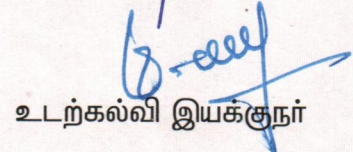 உடற்கல்வி இயக்குநர்